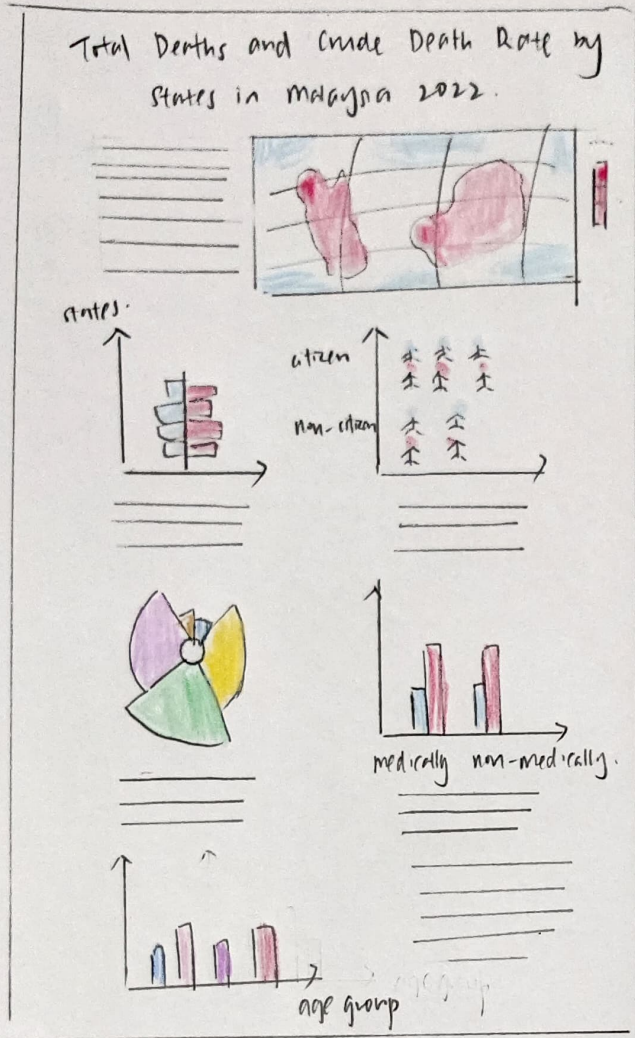 Total Deaths and Crude Death Rate by
States in Malaysia 2022.
states.
citizen
non-citizen
medically non-medically.
age group
age group